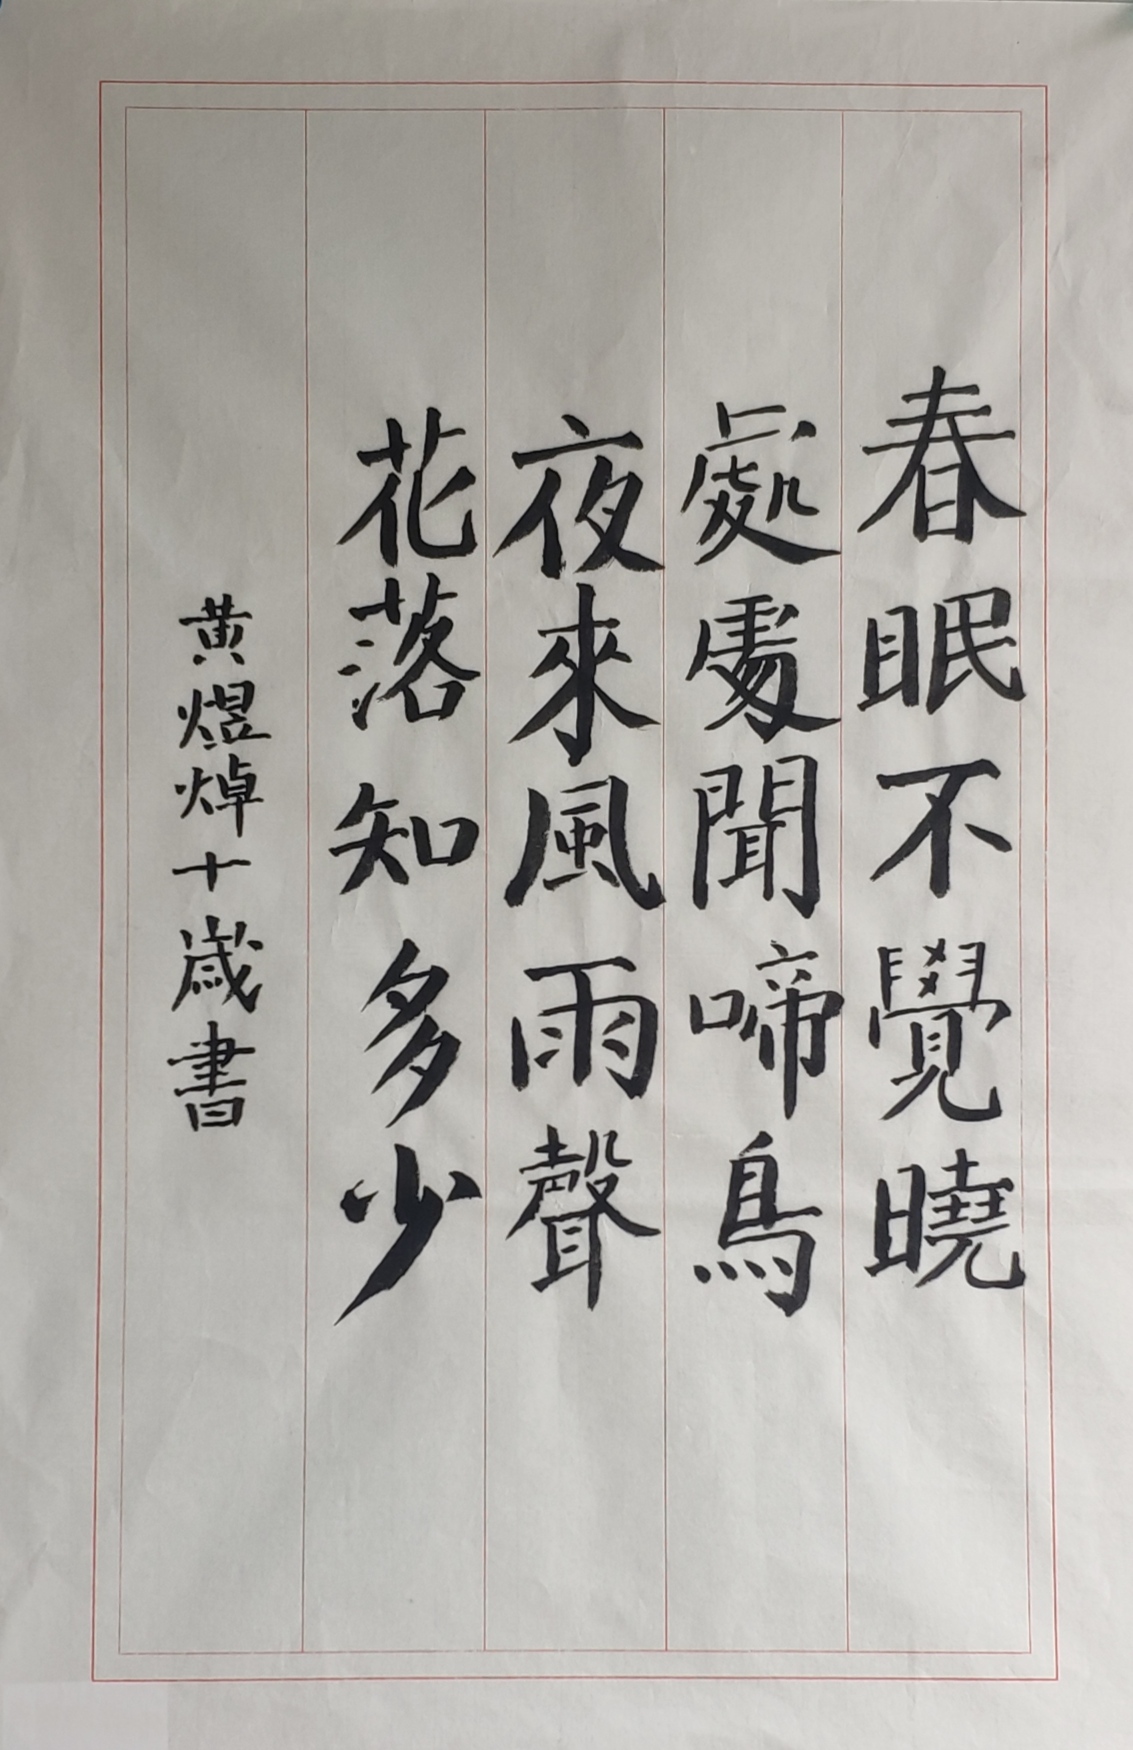 春眠不覺曉
處處聞啼鳥
夜來風雨聲
花落知多少
黄煜焯十歲書